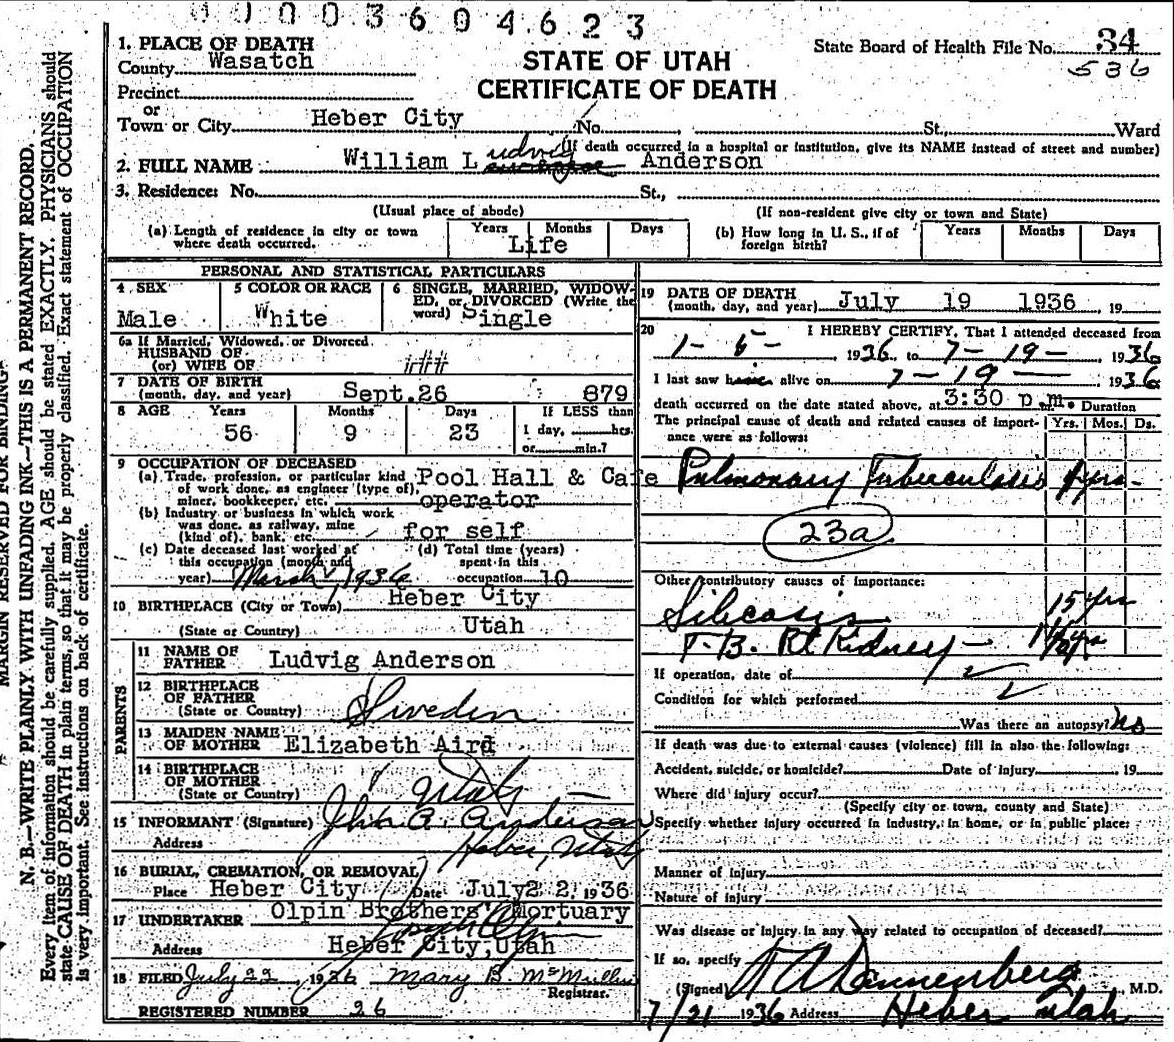 00003604623
State Board of Health File No. 34
536
STATE OF UTAH
CERTIFICATE OF DEATH
1. PLACE OF DEATH
County Wasatch
Precinct
or
Town or City Heber City No. St., Ward
(If death occurred in a hospital or institution, give its NAME instead of street and number)
2. FULL NAME William Ludvig Anderson
3. Residence: No. St.,
(Usual place of abode) (If non-resident give city or town and State)
(a) Length of residence in city or town where death occurred. Years Months Days
Life
(b) How long in U. S., if of foreign birth? Years Months Days
PERSONAL AND STATISTICAL PARTICULARS
4 SEX
Male
5 COLOR OR RACE
White
6 SINGLE, MARRIED, WIDOWED, or DIVORCED (Write the word) Single
6a If Married, Widowed, or Divorced
HUSBAND OF
(or) WIFE OF
7 DATE OF BIRTH
(month, day, and year) Sept. 26 879
8 AGE Years Months Days If LESS than
56 9 23 1 day, hrs.
or min.?
9 OCCUPATION OF DECEASED
(a) Trade, profession, or particular kind of work done, as engineer (type of), miner, bookkeeper, etc. Pool Hall & Cafe operator
(b) Industry or business in which work was done, as railway, mine (kind of), bank, etc. for self
(c) Date deceased last worked at this occupation (month and year) March, 1936
(d) Total time (years) spent in this occupation 10
10 BIRTHPLACE (City or Town) Heber City
(State or Country) Utah
PARENTS
11 NAME OF FATHER Ludvig Anderson
12 BIRTHPLACE OF FATHER
(State or Country) Sweden
13 MAIDEN NAME OF MOTHER Elizabeth Aird
14 BIRTHPLACE OF MOTHER
(State or Country) Utah
15 INFORMANT (Signature) John A. Anderson
Address Heber, Utah
16 BURIAL, CREMATION, OR REMOVAL
Place Heber City Date July 22, 1936
17 UNDERTAKER Olpin Brothers' Mortuary
Address Heber City, Utah
18 FILED July 22, 1936 Mary B. McMullin
Registrar.
REGISTERED NUMBER 26
19 DATE OF DEATH
(month, day, and year) July 19 1936, 19
20 I HEREBY CERTIFY, That I attended deceased from
1-5-, 1936, to 7-19-, 1936
I last saw him alive on 7-19-, 1936
death occurred on the date stated above, at 3:30 p.m. Duration
The principal cause of death and related causes of importance were as follows: Yrs. Mos. Ds.
Pulmonary Tuberculosis yrs-
23a
Other contributory causes of importance:
Silicosis 15 yrs
T.B. Rt Kidney -
If operation, date of
Condition for which performed
Was there an autopsy? No
If death was due to external causes (violence) fill in also the following:
Accident, suicide, or homicide? Date of injury, 19
Where did injury occur?
(Specify city or town, county and State)
Specify whether injury occurred in industry, in home, or in public place:
Manner of injury
Nature of injury
Was disease or injury in any way related to occupation of deceased?
If so, specify
(Signed) Dannenberg, M.D.
7/21 1936 Address Heber Utah
MARGIN RESERVED FOR BINDING
N. B.—WRITE PLAINLY WITH UNFADING INK—THIS IS A PERMANENT RECORD.
Every item of information should be carefully supplied. AGE should be stated EXACTLY. PHYSICIANS should
state CAUSE OF DEATH in plain terms, so that it may be properly classified. Exact statement of OCCUPATION
is very important. See instructions on back of certificate.